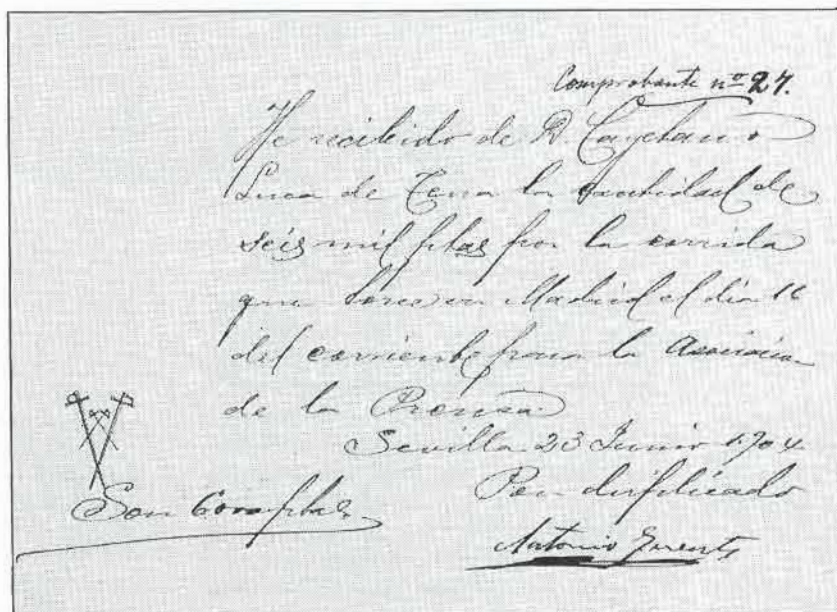 Comprobante nº 27.
He recibido de D. Cayetano
Luca de Tena la cantidad de
seis mil ptas por la corrida
que toree en Madrid el dia 16
del corriente para la Asociacion
de la Prensa
Sevilla 23 Junio 1904
Por duplicado
Son 6000 ptas
Antonio Fuentes